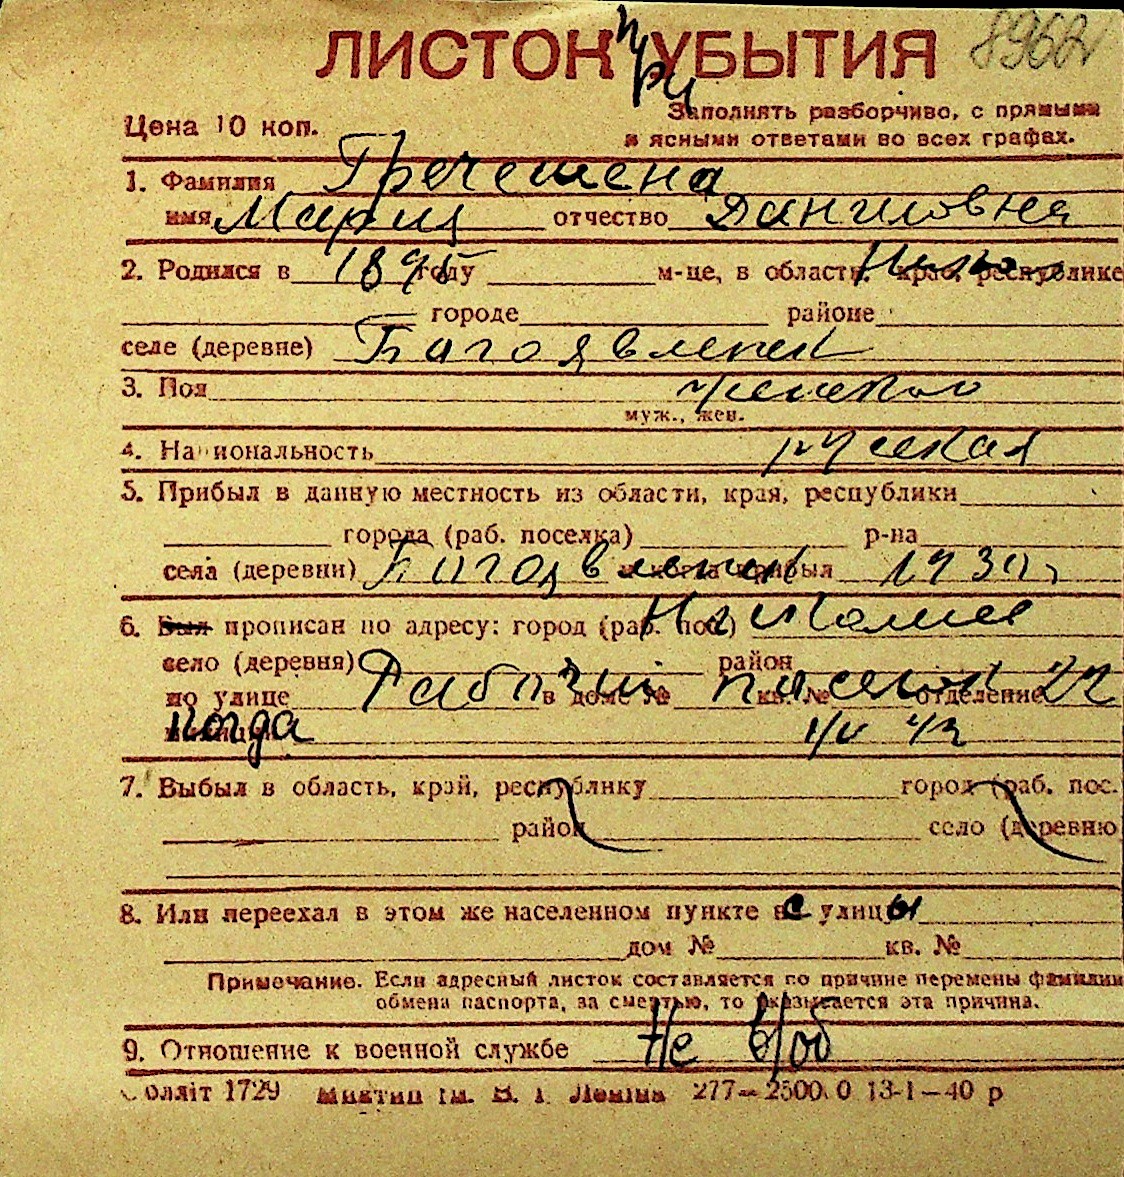 ЛИСТОК при УБЫТИЯ 8962
Заполнять разборчиво, с прямыми
Цена 10 коп.
и ясными ответами во всех графах.
1. Фамилия Гречешена
имя Мария отчество Даниловна
2. Родился в 1895 году м-це, в области, края, республике
городе районе
селе (деревне) Багоявленск
3. Пол женский
муж., жен.
4. Национальность русская
5. Прибыл в данную местность из области, края, республики
города (раб. поселка) р-на
села (деревни) Багоявленск и когда прибыл 1930г,
6. Был прописан по адресу: город (раб. пос.) Николаев
село (деревня) район
по улице Рабочий в доме № поселок кв. № отделение 22
когда
7. Выбыл в область, край, республику город (раб. пос.
район село (деревню
8. Или переехал в этом же населенном пункте с улицы
дом № кв. №
Примечание. Если адресный листок составляется по причине перемены фамилии
обмена паспорта, за смертью, то указывается эта причина.
9. Отношение к военной службе Не в/об
олліт 1729 Миктип ім. В. І. Леніна 277—2500.0 13-1—40 р